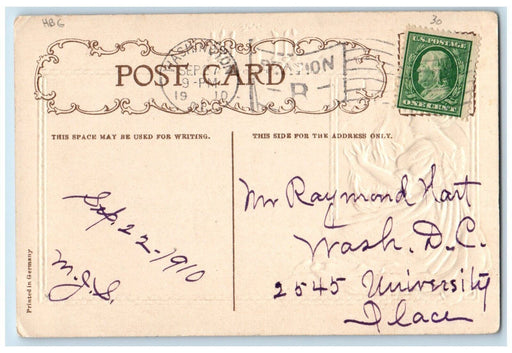 HBG
30
U.S. POSTAGE
ONE CENT
WASHINGTON
SEP
9-PM
1910
STATION
POST CARD
THIS SPACE MAY BE USED FOR WRITING.
THIS SIDE FOR THE ADDRESS ONLY.
Sep. 22-1910
M.J.S.
Mr Raymond Hart
Wash. D.C.
2545 University
Place
Printed in Germany